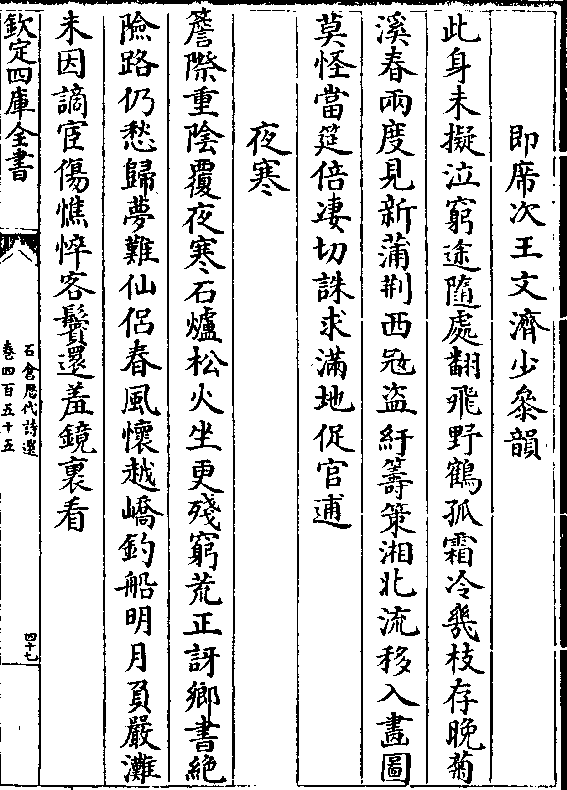 即席次王文濟少叅韻
此身未擬泣窮途隨處翻飛野鶴孤霜冷幾枝存晚菊
溪春兩度見新蒲荆西冦盗紆籌策湘北流移入畫圖
莫怪當筵倍凄切誅求滿地促官逋
夜寒
簷際重陰覆夜寒石爐松火坐更殘窮荒正訝鄉書絶
險路仍愁歸夢難仙侣春風懷越嶠釣船明月負嚴灘
未因謫宦傷憔悴客鬢還羞鏡裏看
欽定四庫全書
石倉歴代詩選
卷四百五十五
四十七